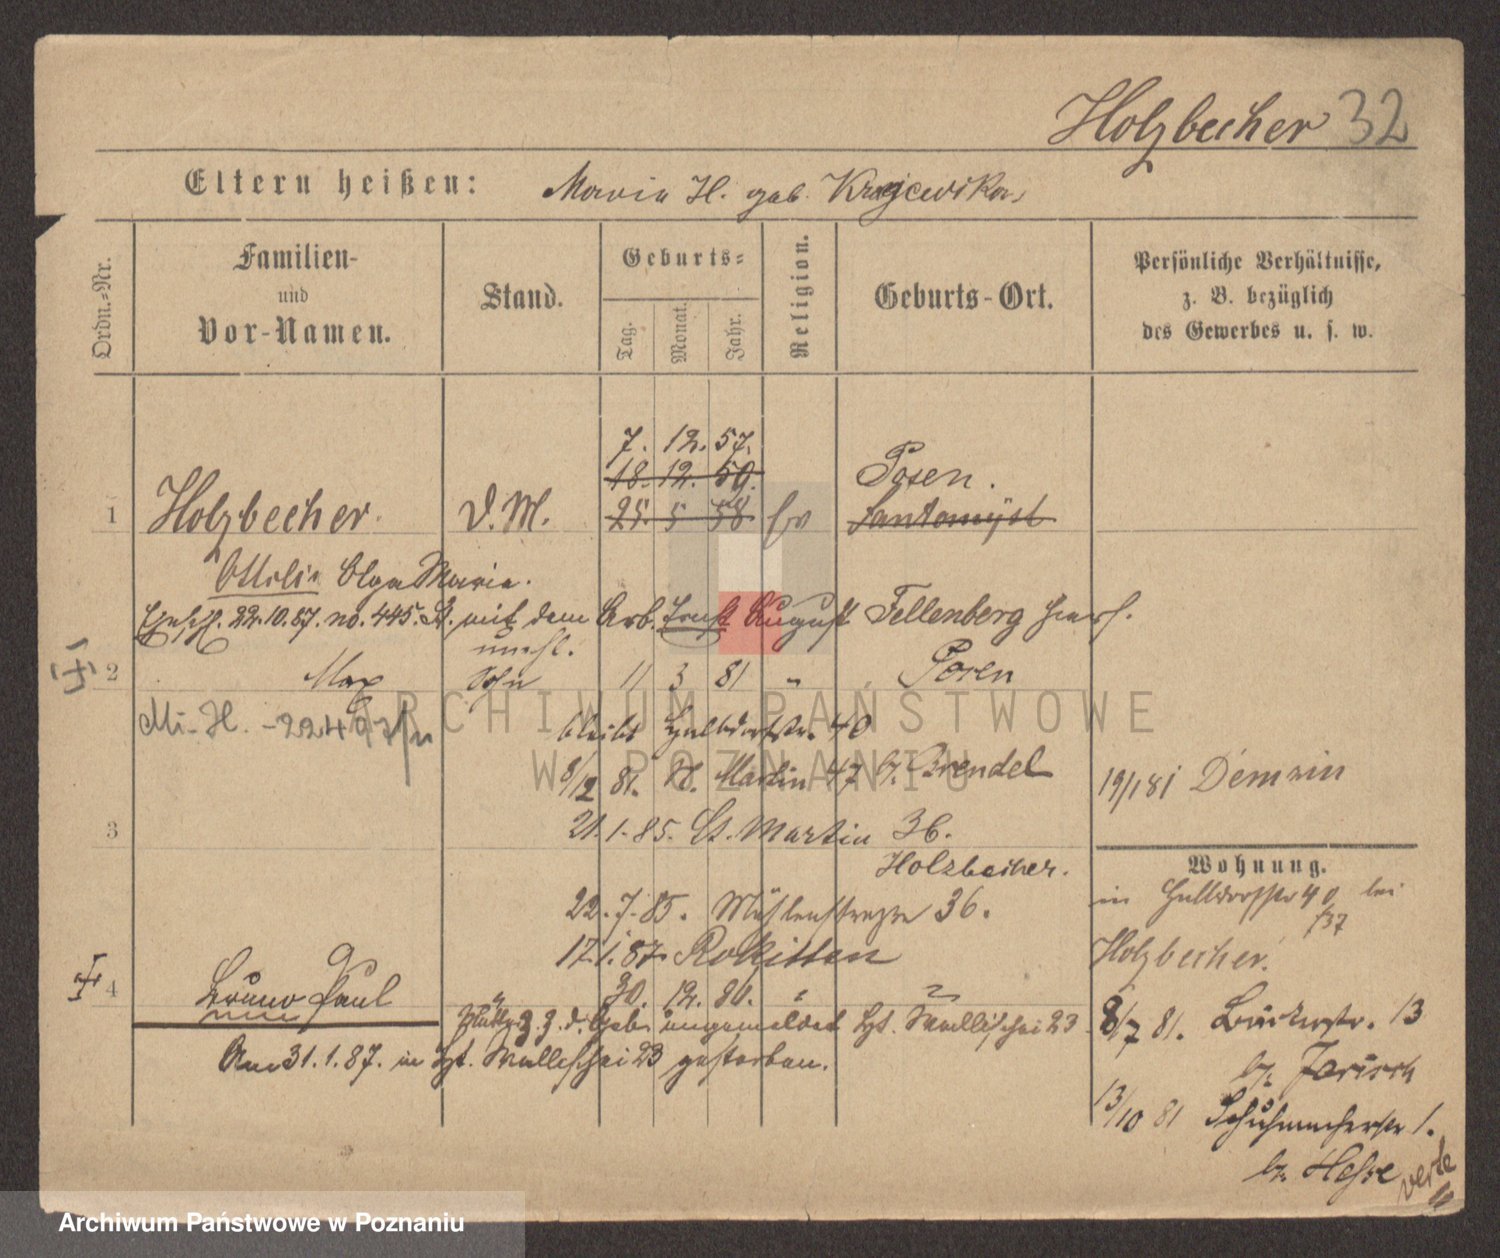 Holzbecher 32
Eltern heißen: Maria H. geb. Krajewska
Ordn.-Nr.
Familien-
und
Vor-Namen.
Stand.
Geburts-
Tag.
Monat.
Jahr.
Religion.
Geburts-Ort.
Persönliche Verhältnisse,
z. B. bezüglich
des Gewerbes u. s. w.
7. 12. 57.
18. 12. 59. Posen.
1 Holzbecher D. M. 25. 5 58 Ev Santomysl
Ottilie Olga Maria.
22.10.87. no. 445. mit dem Arb. Ernst August Fellenberg hier.
unehl.
2 Max Sohn 11 3 81 " Posen
bleibt Halbdorfstr. 40
8/12 81. St. Martin 47 b. Brendel
19/1 81 Demzin
3 21.1.85. St. Martin 36.
Holzbecher.
Wohnung.
in Halbdorfstr 40 bei
/37
Holzbecher.
22.7.85. Mühlenstrasse 36.
17.1.87. Rokitten
4 Bruno Paul " 30. 12. 86. " "
z. d. Geb. angemeldet Wallischei 23
Am 31.1.87. in Wallischei 23 gestorben.
8/7 81. 13
bei
13/10 81 Schuhmacherstr 1.
bei Hesse
verte
ARCHIWUM PAŃSTWOWE
W POZNANIU
Archiwum Państwowe w Poznaniu